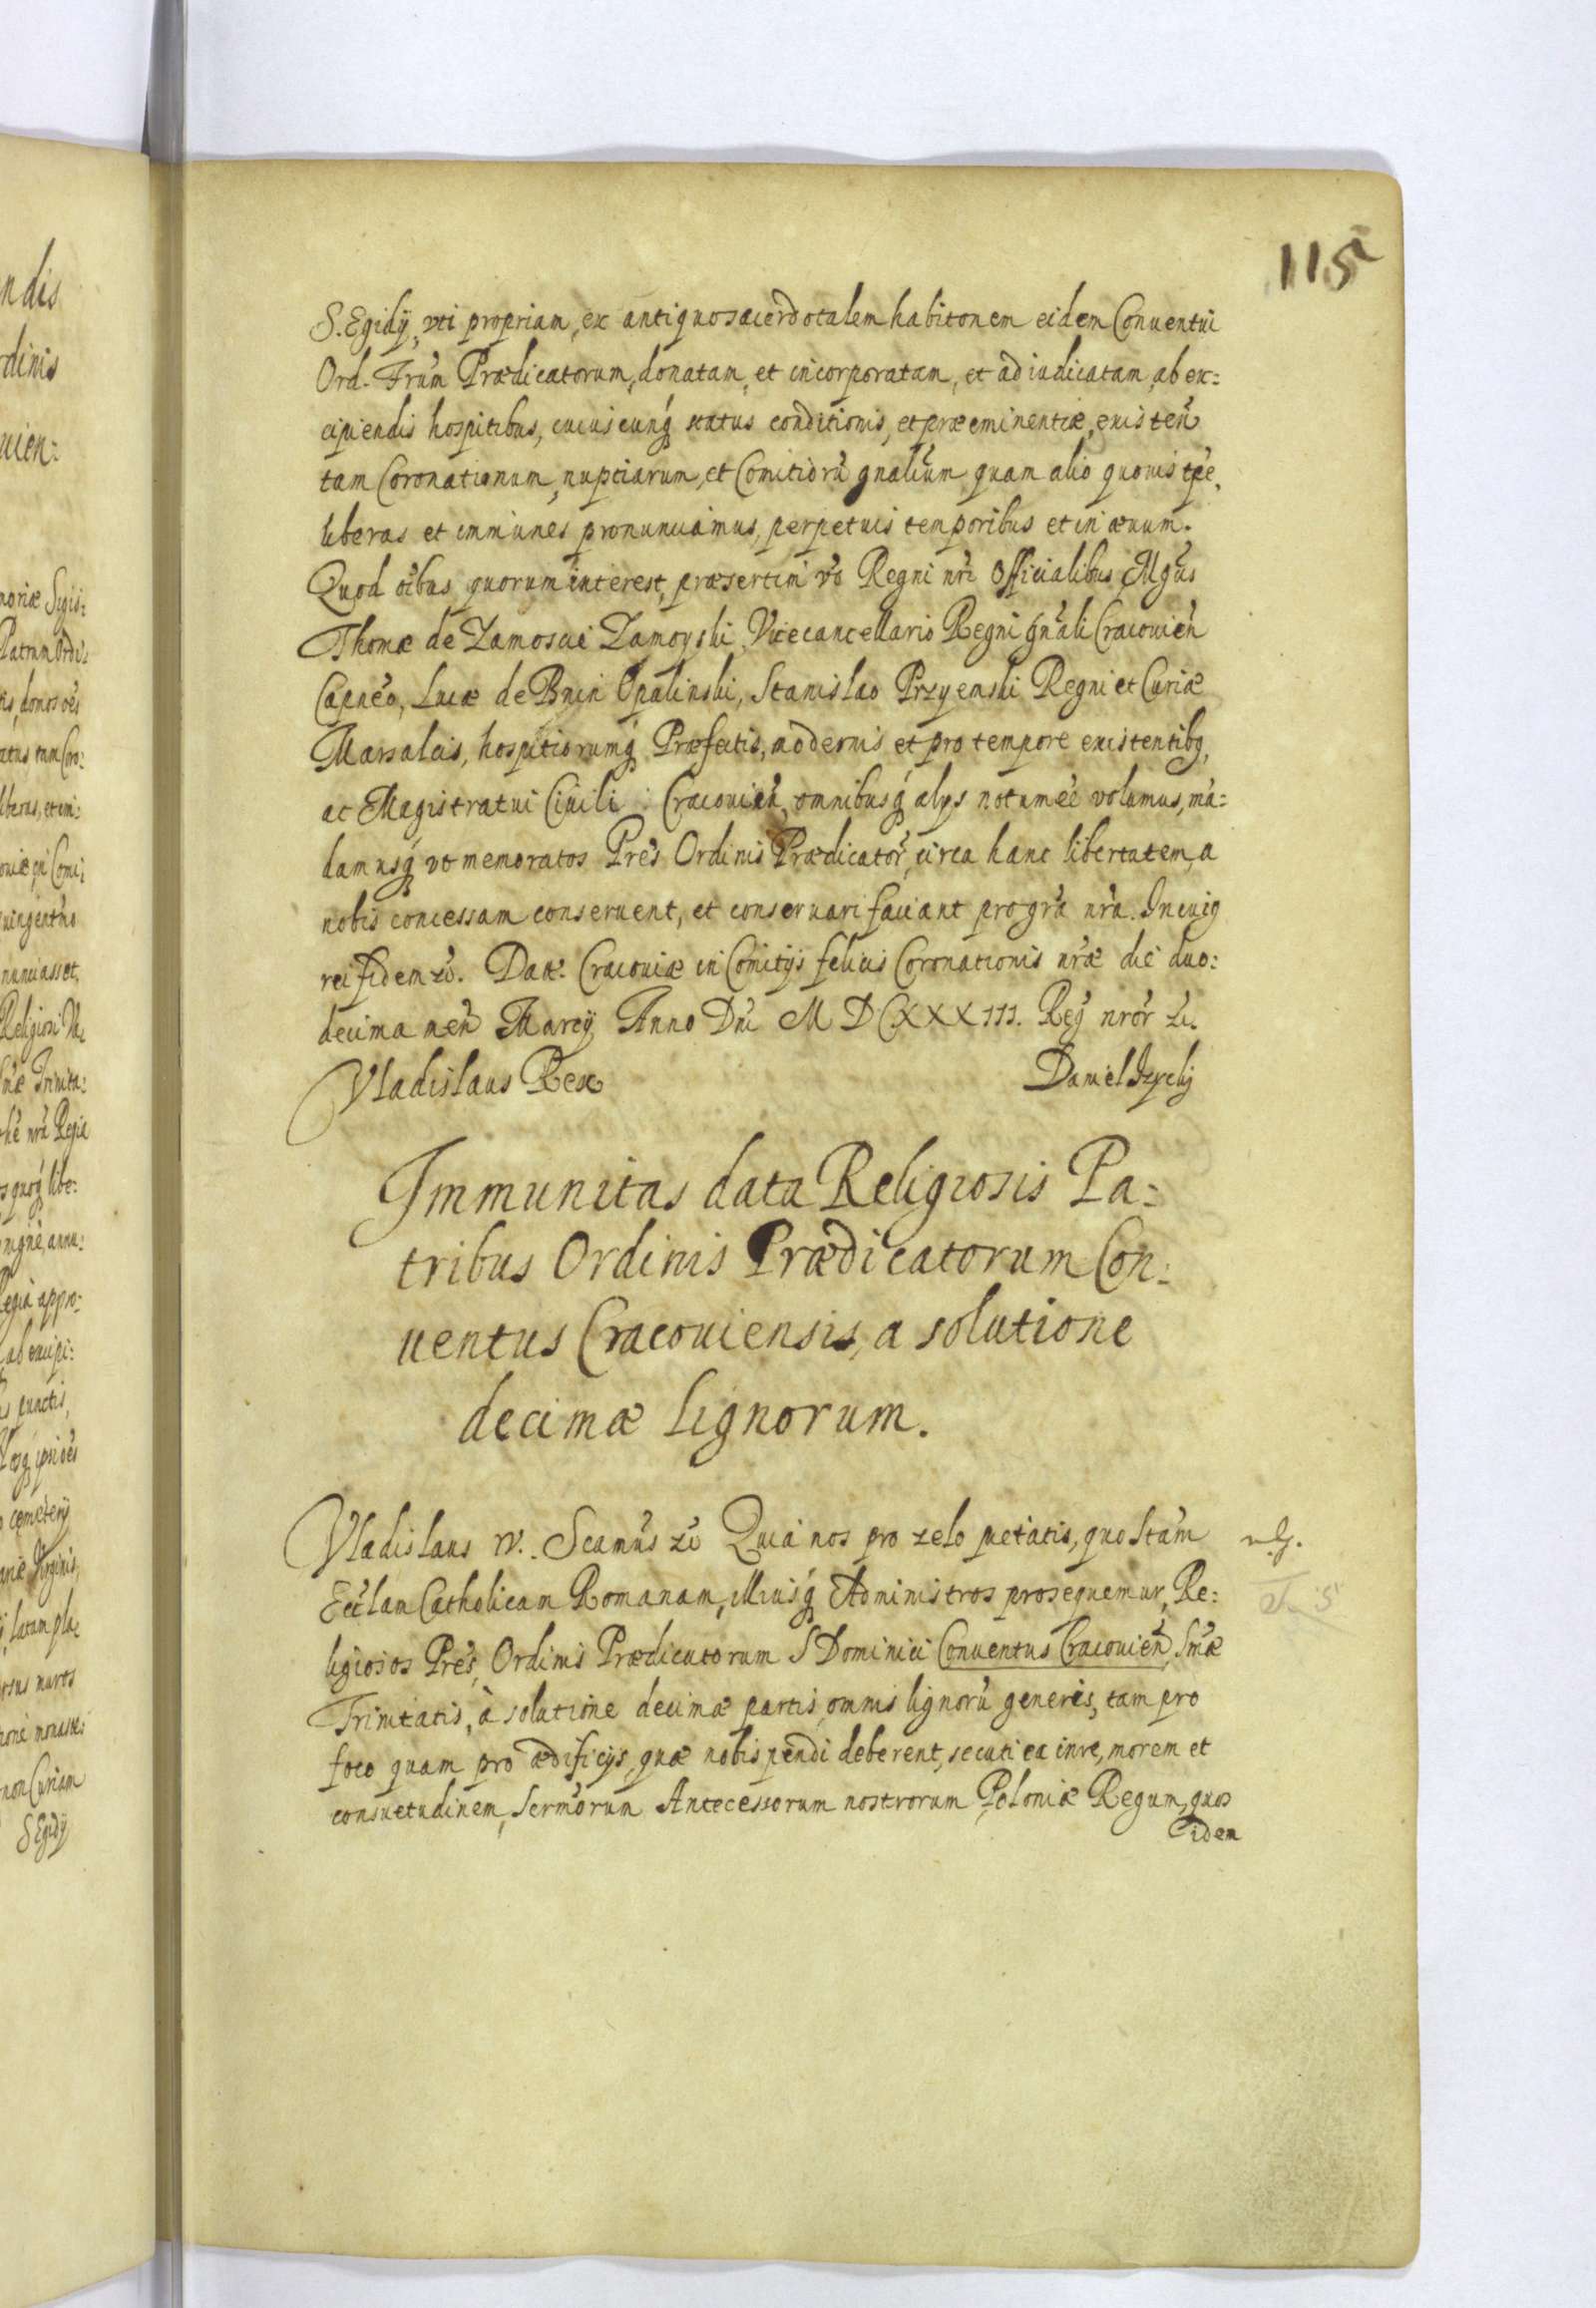 115
S. Egidÿ, vti propriam, ex antiquo sacerdotalem habitonem eidem Conuentui
Ord. Frum Prædicatorum, donatam, et incorporatam, et adiudicatam, ab ex:
cipiendis hospitibus, cuiuscunq status conditionis, et præeminentiæ, existen
tam Coronationum, nuptiarum, et Comitioru gnalium quam alio quouis tpe,
liberas et immunes pronunciamus, perpetuis temporibus et in æuum.
Quod oibus quorum interest, præsertim vo Regni nri Officialibus, Mgus
Thomæ de Zamoscie Zamoyski, Vicecancellario Regni gnali Cracouien
Capneo, Lucæ de Bnin Opalinski, Stanislao Przyemski Regni et Curiæ
Marsalcis, hospitiorumq Præfectis, modernis et pro tempore existentibq,
ac Magistratui Ciuili Cracouien, omnibusq alys notum ee volumus, ma:
damusq vt memoratos Pres Ordinis Prædicator, circa hanc libertatem, a
nobis concessam conseruent, et conseruari faciant pro gra nra. In cuig
rei fidem zc. Dat. Cracouiæ in Comitÿs felicis Coronationis nræ die duo:
decima men Marcÿ Anno Dni M D CXXXIII. Reg nror zc.
Vladislaus Rex
Immunitas data Religiosis Pa:
tribus Ordinis Prædicatorum Con:
uentus Cracouiensis, a solutione
decimæ lignorum.
Vladislaus IV. Scamus zc Quia nos pro zelo pietatis, quo Stam
Ecclam Catholicam Romanam, illiusq Administros prosequemur, Re:
ligiosos Pres, Ordinis Prædicatorum S Dominici Conuentus Cracouien, Smæ
Trinitatis, à solutione decimæ partis, omnis lignoru generis, tam pro
foco quam pro ædificÿs, quæ nobis pendi deberent, secuti ea in re, morem et
consuetudinem, Sermorum Antecessorum nostrorum Poloniæ Regum, quos
eidem